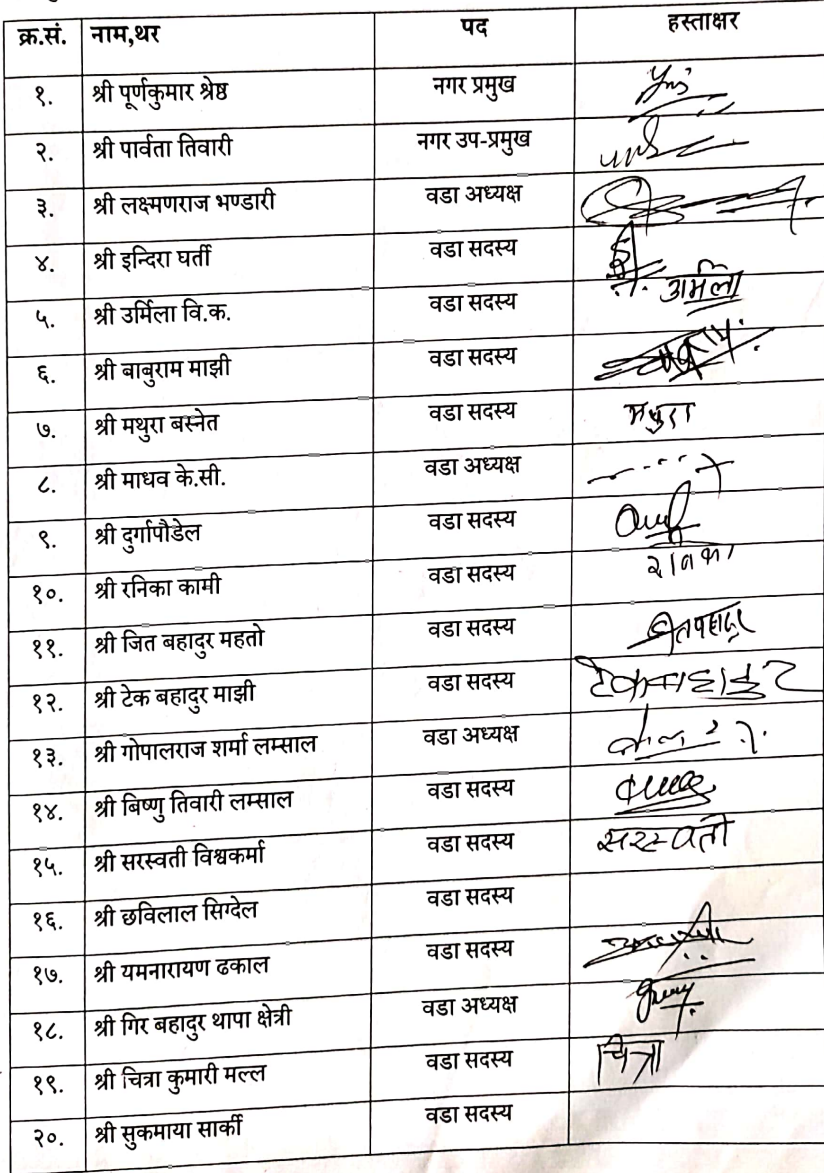 क्र.सं. नाम,थर पद हस्ताक्षर
१. श्री पूर्णकुमार श्रेष्ठ नगर प्रमुख
२. श्री पार्वता तिवारी नगर उप-प्रमुख
३. श्री लक्ष्मणराज भण्डारी वडा अध्यक्ष
४. श्री इन्दिरा घर्ती वडा सदस्य
५. श्री उर्मिला वि.क. वडा सदस्य
६. श्री बाबुराम माझी वडा सदस्य
७. श्री मथुरा बस्नेत वडा सदस्य मथुरा
८. श्री माधव के.सी. वडा अध्यक्ष
९. श्री दुर्गापौडेल वडा सदस्य
१०. श्री रनिका कामी वडा सदस्य
११. श्री जित बहादुर महतो वडा सदस्य
१२. श्री टेक बहादुर माझी वडा सदस्य
१३. श्री गोपालराज शर्मा लम्साल वडा अध्यक्ष
१४. श्री बिष्णु तिवारी लम्साल वडा सदस्य
१५. श्री सरस्वती विश्वकर्मा वडा सदस्य सरस्वती
१६. श्री छविलाल सिग्देल वडा सदस्य
१७. श्री यमनारायण ढकाल वडा सदस्य
१८. श्री गिर बहादुर थापा क्षेत्री वडा अध्यक्ष
१९. श्री चित्रा कुमारी मल्ल वडा सदस्य चित्रा
२०. श्री सुकमाया सार्की वडा सदस्य